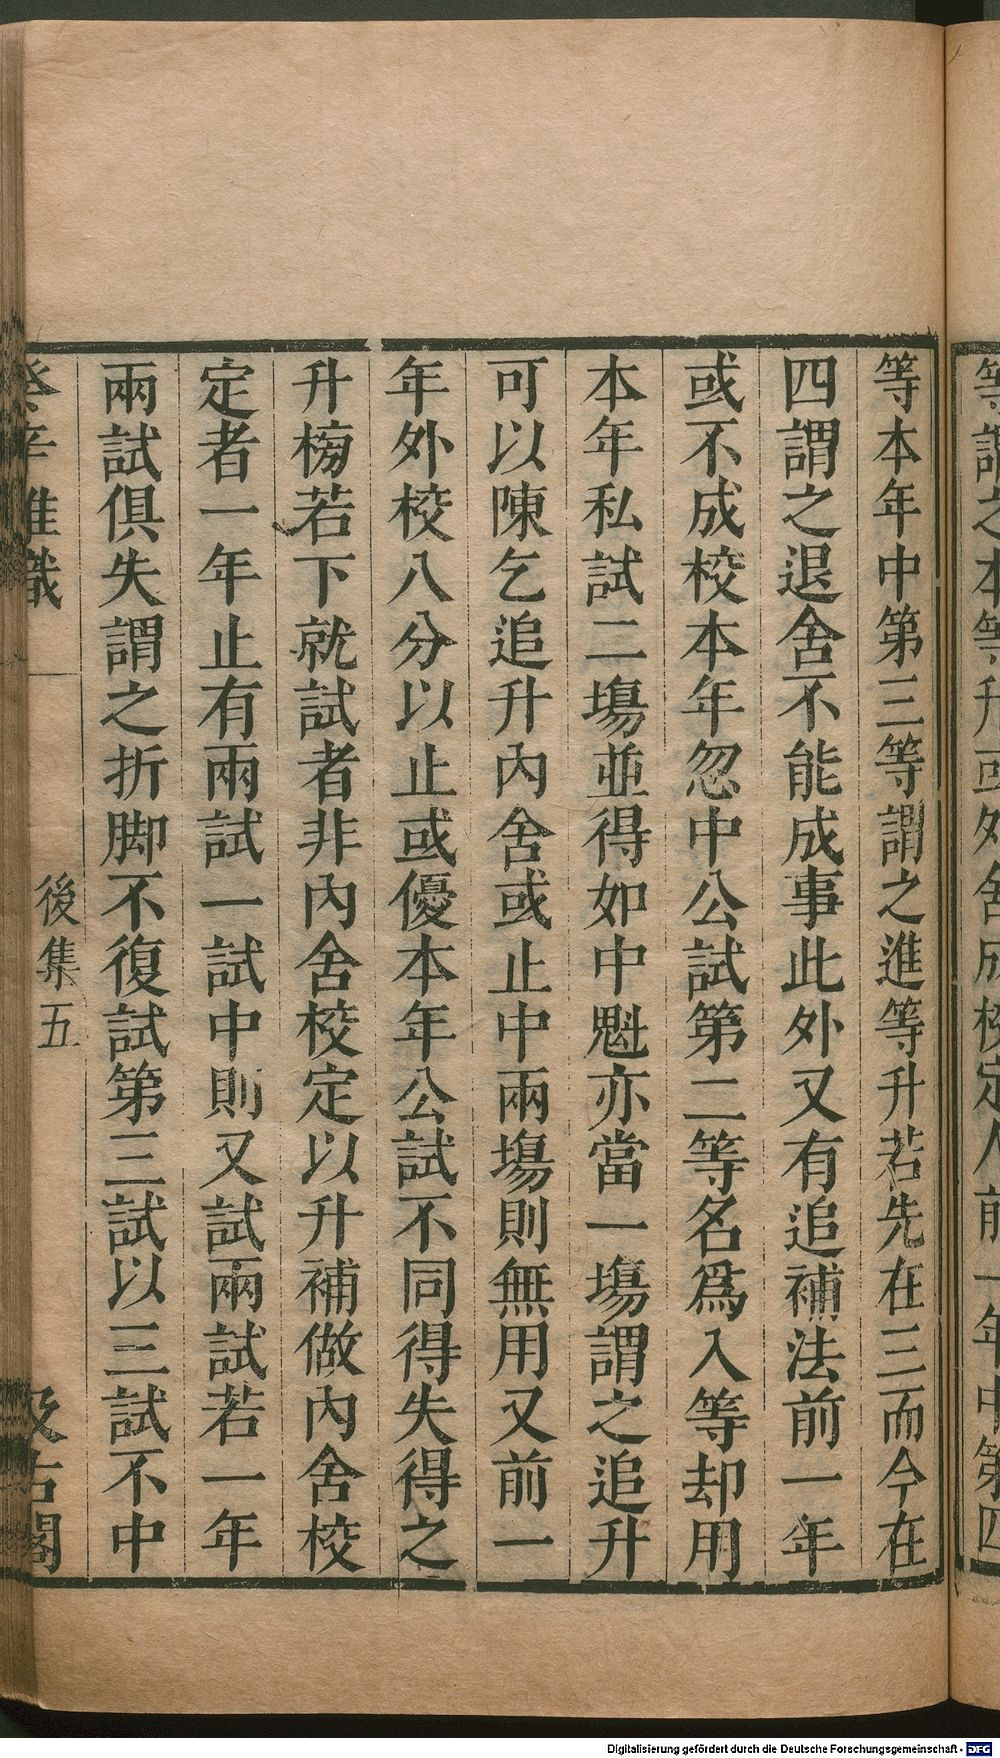 等謂之本等升或外舍成校定人前一年中第四
等本年中第三等謂之進等升若先在三而今在
四謂之退舍不能成事此外又有追補法前一年
或不成校本年忽中公試第二等名爲入等却用
本年私試二塲並得如中魁亦當一塲謂之追升
可以陳乞追升內舍或止中兩塲則無用又前一
年外校八分以止或優本年公試不同得失得之
升榜若下就試者非內舍校定以升補做內舍校
定者一年止有兩試一試中則又試兩試若一年
兩試俱失謂之折脚不復試第三試以三試不中
癸辛雜識
後集五
汲古閣
Digitalisierung gefördert durch die Deutsche Forschungsgemeinschaft - DFG